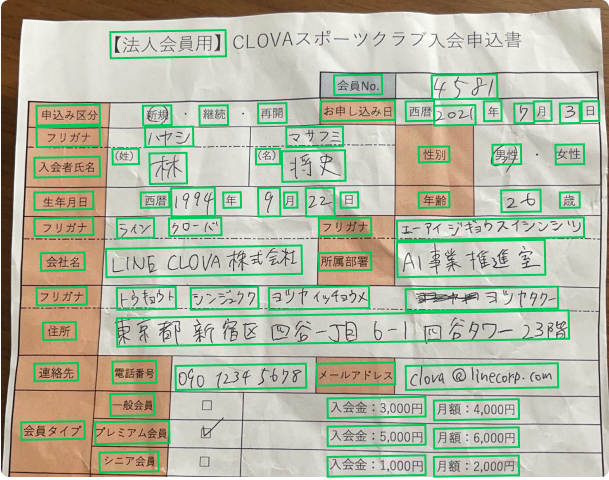 【法人会員用】CLOVAスポーツクラブ入会申込書
会員No. 4581
申込み区分 新規・継続・再開 お申し込み日 西暦 2021 年 7 月 3 日
フリガナ ハヤシ マサフミ
入会者氏名 (姓) 林 (名) 将史 性別 男性・女性
生年月日 西暦 1994 年 9 月 22 日 年齢 26 歳
フリガナ ライン クローバ フリガナ エーアイジギョウスイシンシツ
会社名 LINE CLOVA 株式会社 所属部署 AI事業推進室
フリガナ トウキョウト シンジュクク ヨツヤイッチョウメ ヨツヤタワー
住所 東京都 新宿区 四谷一丁目 6-1 四谷タワー 23階
連絡先 電話番号 090 1234 5678 メールアドレス clova@linecorp.com
一般会員 □ 入会金：3,000円 月額：4,000円
会員タイプ プレミアム会員 ☑ 入会金：5,000円 月額：6,000円
シニア会員 □ 入会金：1,000円 月額：2,000円